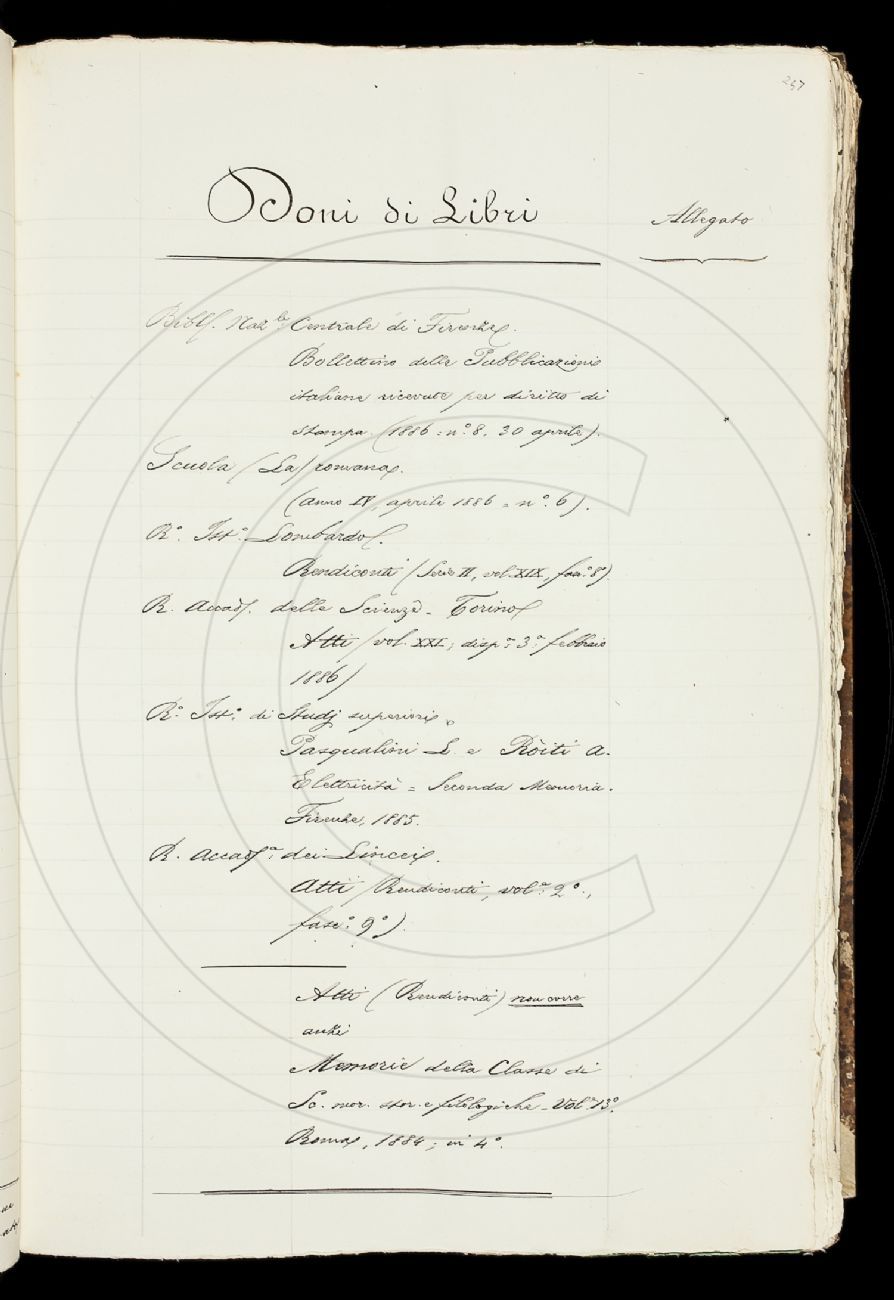 257
Doni di Libri
Allegato
Bibl. Naz.le Centrale di Firenze.
Bollettino delle Pubblicazioni
italiane ricevute per diritto di
stampa (1886 = n.° 8. 30 aprile).
Scuola (La) romana.
(anno IV, aprile 1886 = n.° 6).
R.° Ist.° Lombardo.
Rendiconti (Serie II, vol. XIX, fasc.° 8°)
R. Accad. delle Scienze - Torino
Atti (vol. XXI; disp.a 3.a febbraio
1886)
R.° Ist.° di Studj superiori.
Pasqualini L. e Ròiti A.
Elettricità = Seconda Memoria.
Firenze, 1885.
R. Accad.a dei Lincei.
Atti (Rendiconti, vol.e 2°.,
fasc.° 9°).
Atti (Rendiconti) non corre
anzi
Memorie della Classe di
Sc. mor. stor. e filologiche - Vol.e 13°.
Roma, 1884; in 4°.